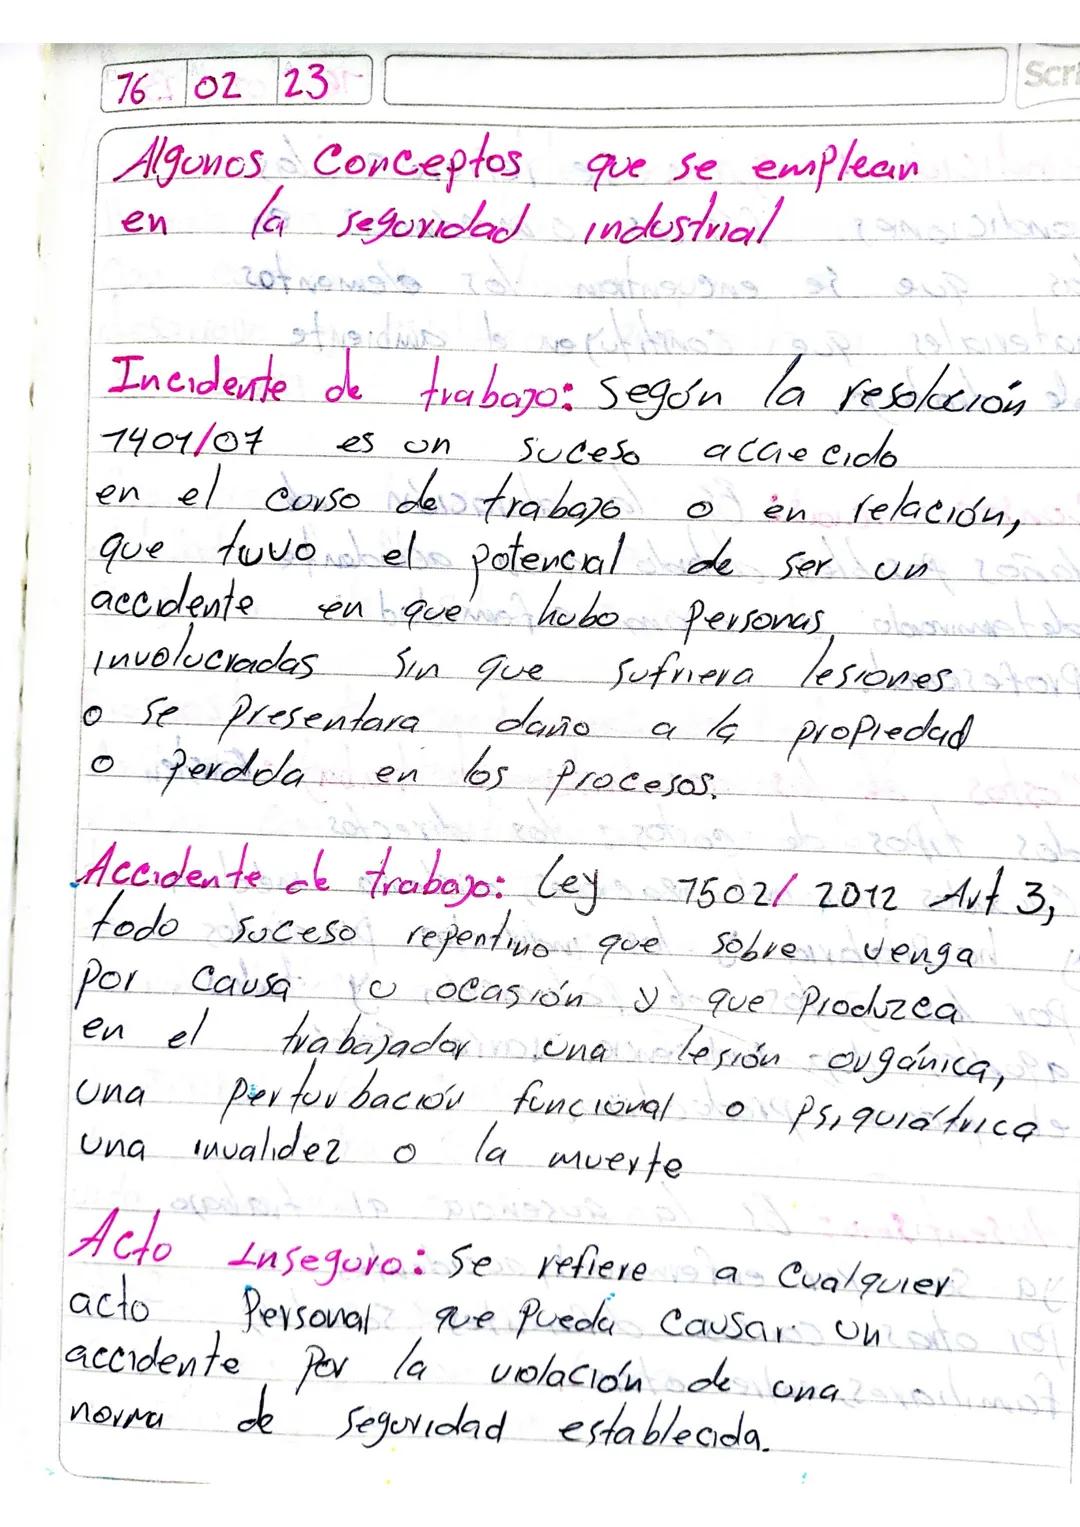 16 02 23
Scri
Algunos Conceptos que se emplean
en la seguridad industrial
Incidente de trabajo: Según la resolución
1401/07 es un suceso acaecido
en el curso de trabajo o en relación,
que tuvo el potencial de ser un
accidente en que hubo Personas
involucradas Sin que sufriera lesiones
o se Presentara daño a la propiedad
o Perdda en los Procesos.
Accidente de trabajo: Ley 1502/ 2012 Art 3,
todo suceso repentino que sobre venga
por Causa u ocasión y que Produzca
en el trabajador una lesión orgánica,
una Perturbación funcional o Psiquiátrica
una invalidez o la muerte
Acto Inseguro: Se refiere a Cualquier
acto Personal que Pueda Causar un
accidente Por la violación de una
norma de Seguridad establecida.